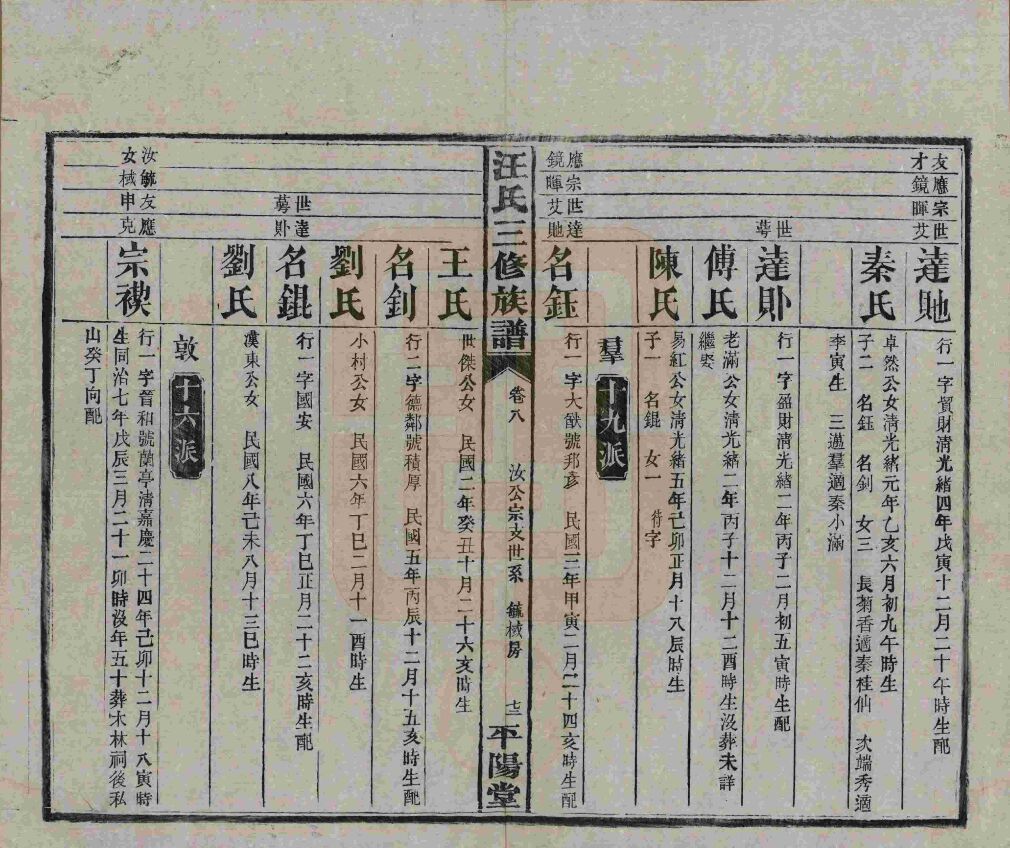 友應宗世
才鏡暉艾
達貤
行一字貿財清光緒四年戊寅十二月二十午時生配
秦氏
卓然公女清光緒元年乙亥六月初九午時生
子二 名鈺 名釗 女三 長菊香適秦桂仙 次端秀適
李寅生 三邁羣適秦小滿
世達
蕚
達卧
行一字盈財清光緒二年丙子二月初五寅時生配
傅氏
老滿公女清光緒二年丙子十二月十二酉時生沒葬未詳
繼娶
陳氏
易紅公女清光緒五年己卯正月十八辰時生
子一 名錕 女一 待字
羣 十九派
應宗世達
鏡暉艾貤
名鈺
行一字大猷號邦彥 民國三年甲寅二月二十四亥時生配
汪氏三修族譜
卷八 汝公宗支世系 毓棫房 十三
平陽堂
王氏
世傑公女 民國二年癸丑十月二十六亥時生
名釗
行二字德鄰號積厚 民國五年丙辰十二月十五亥時生配
劉氏
小村公女 民國六年丁巳二月十一酉時生
世達
蕚卧
名錕
行一字國安 民國六年丁巳正月二十二亥時生配
劉氏
漢東公女 民國八年己未八月十三巳時生
敦 十六派
汝毓友應
女棫申克
宗禊
行一字晉和號蘭亭清嘉慶二十四年己卯十二月十八寅時
生同治七年戊辰三月二十一卯時沒年五十葬木林祠後私
山癸丁向配